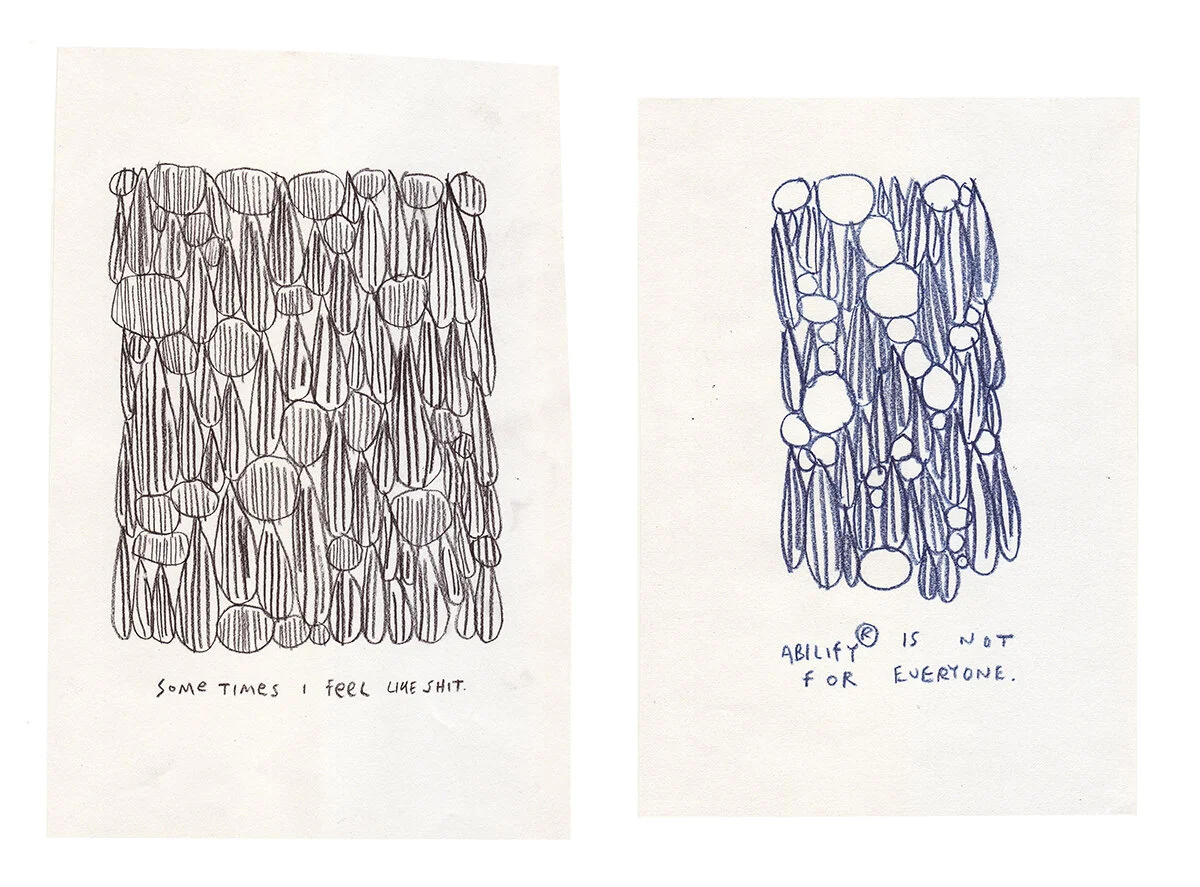 SOME TIMES I FEEL LIKE SHIT.
ABILIFY® IS NOT
FOR EVERYONE.